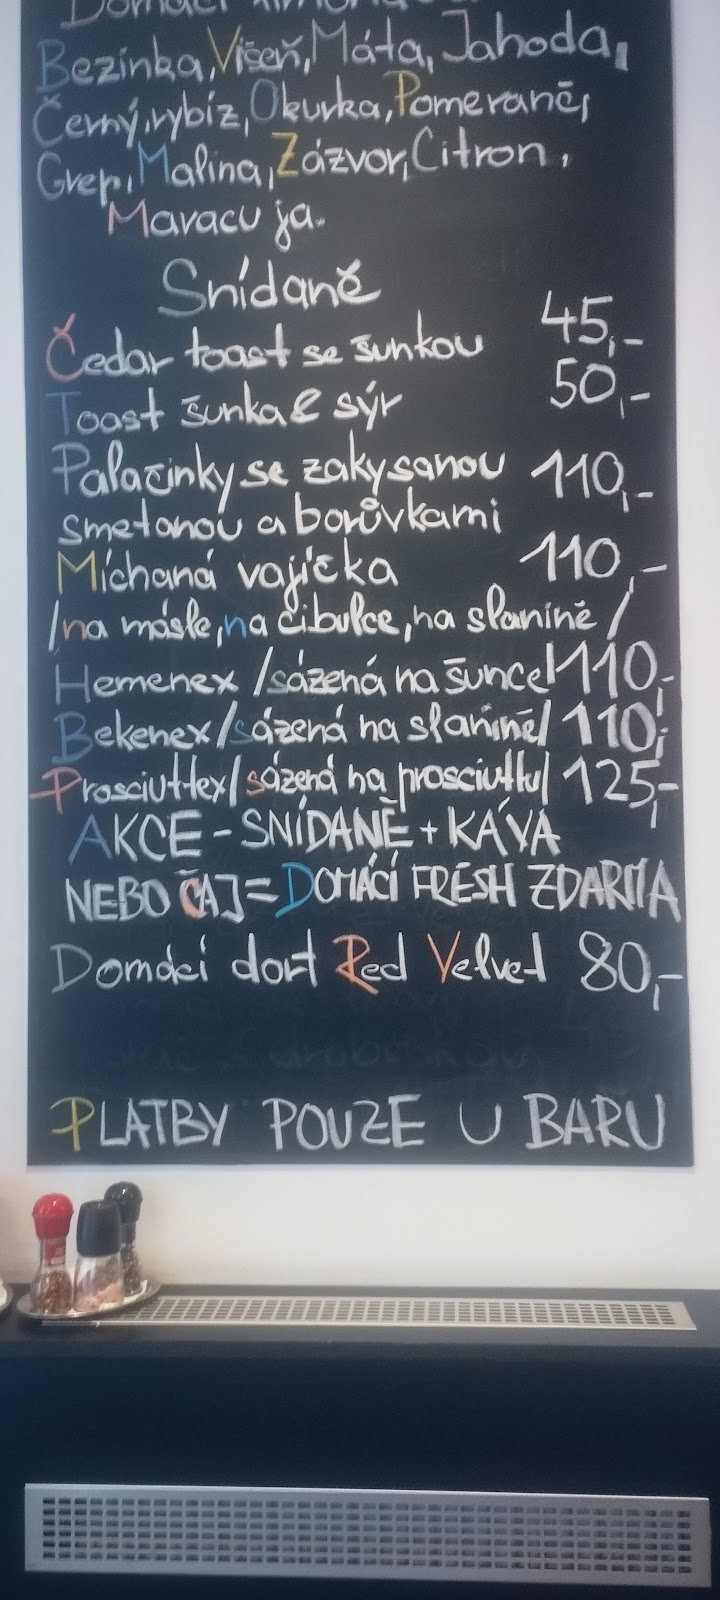 Domácí
Bezinka, Višeň, Máta, Jahoda,
Černý rybíz, Okurka, Pomeranč,
Grep, Malina, Zázvor, Citron,
Maracuja.
Snídaně
Čedar toast se šunkou 45,-
Toast šunka & sýr 50,-
Palačinky se zakysanou 110,-
smetanou a borůvkami
Míchaná vajíčka 110,-
/na másle, na cibulce, na slanině/
Hemenex /sázená na šunce/ 110,-
Bekenex /sázená na slanině/ 110,-
Prosciuttex /sázená na prosciuttu/ 125,-
AKCE - SNÍDANĚ + KÁVA
NEBO ČAJ = DOMÁCÍ FRESH ZDARMA
Domácí dort Red Velvet 80,-
PLATBY POUZE U BARU